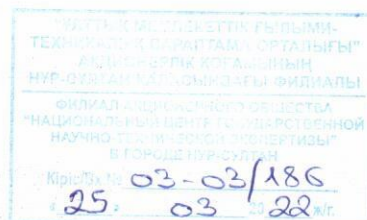 "ҰЛТТЫҚ МЕМЛЕКЕТТІК ҒЫЛЫМИ-
ТЕХНИКАЛЫҚ САРАПТАМА ОРТАЛЫҒЫ"
АКЦИОНЕРЛІК ҚОҒАМЫНЫҢ
НҰР-СҰЛТАН ҚАЛАСЫНДАҒЫ ФИЛИАЛЫ
ФИЛИАЛ АКЦИОНЕРНОГО ОБЩЕСТВА
"НАЦИОНАЛЬНЫЙ ЦЕНТР ГОСУДАРСТВЕННОЙ
НАУЧНО-ТЕХНИЧЕСКОЙ ЭКСПЕРТИЗЫ"
В ГОРОДЕ НУР-СУЛТАН
Кіріс/Вх.№ 03-03/186
« 25 » 03 2022 ж/г.